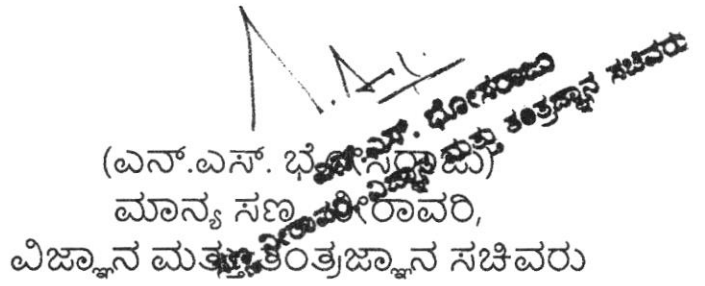 (ಎನ್.ಎಸ್. ಭೋಸರಾಜು)
ಮಾನ್ಯ ಸಣ್ಣ ನೀರಾವರಿ,
ವಿಜ್ಞಾನ ಮತ್ತು ತಂತ್ರಜ್ಞಾನ ಸಚಿವರು
ಎನ್.ಎಸ್. ಭೋಸರಾಜು
ಸಣ್ಣ ನೀರಾವರಿ, ವಿಜ್ಞಾನ ಮತ್ತು ತಂತ್ರಜ್ಞಾನ ಸಚಿವರು